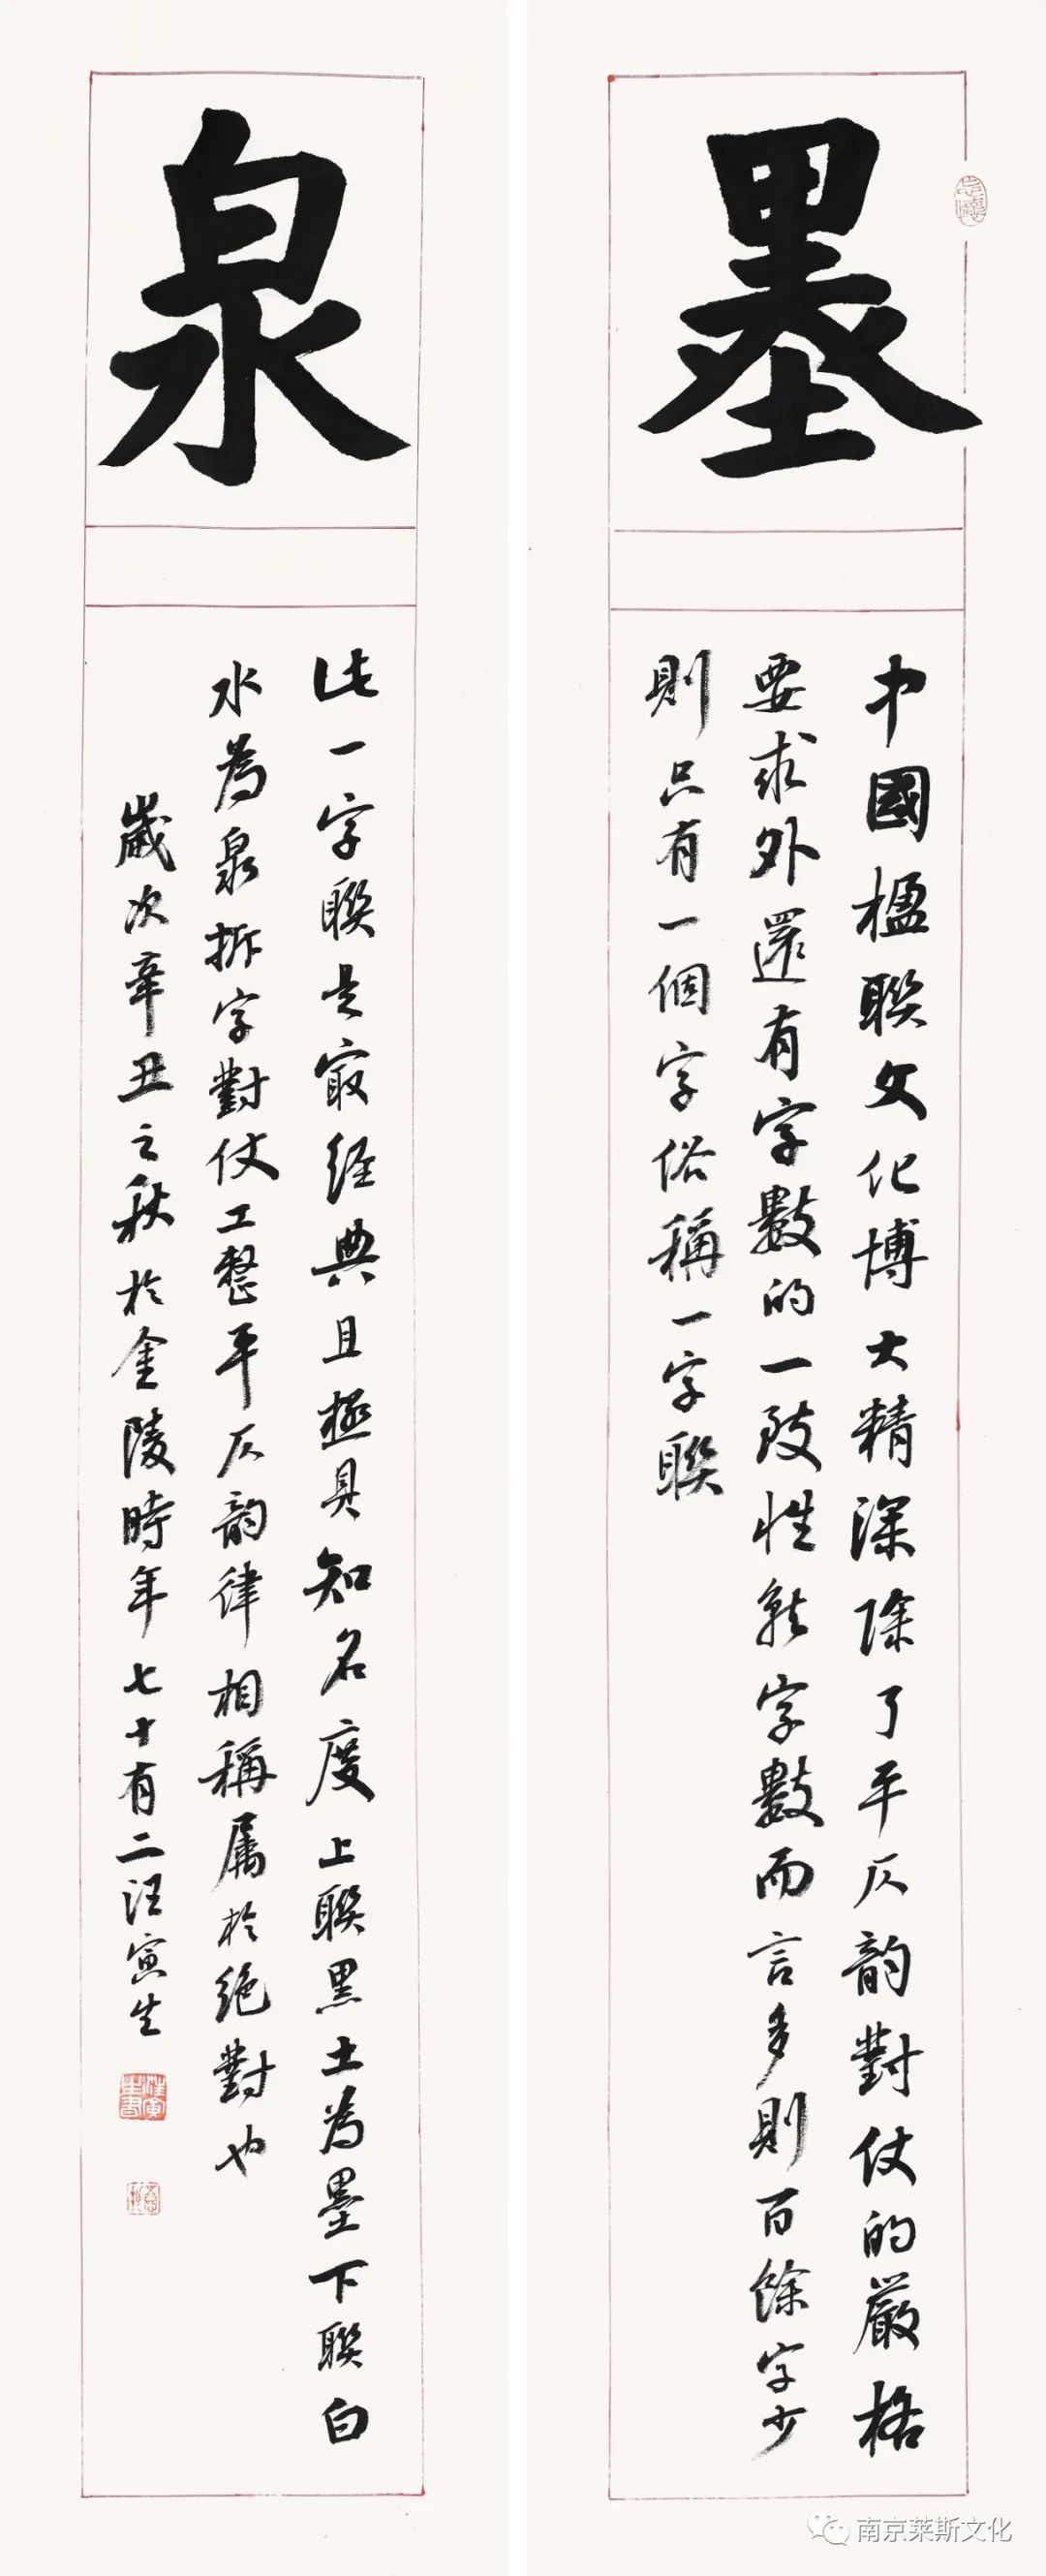 墨
中國楹聯文化博大精深除了平仄韵對仗的嚴格
要求外還有字數的一致性就字數而言多則百餘字少
則只有一個字俗稱一字聯
泉
此一字聯是最经典且極具知名度上聯黑土為墨下聯白
水為泉拆字對仗工整平仄韵律相稱属於绝對也
歲次辛丑之秋於金陵時年七十有二汪寅生
汪寅生書
南京莱斯文化